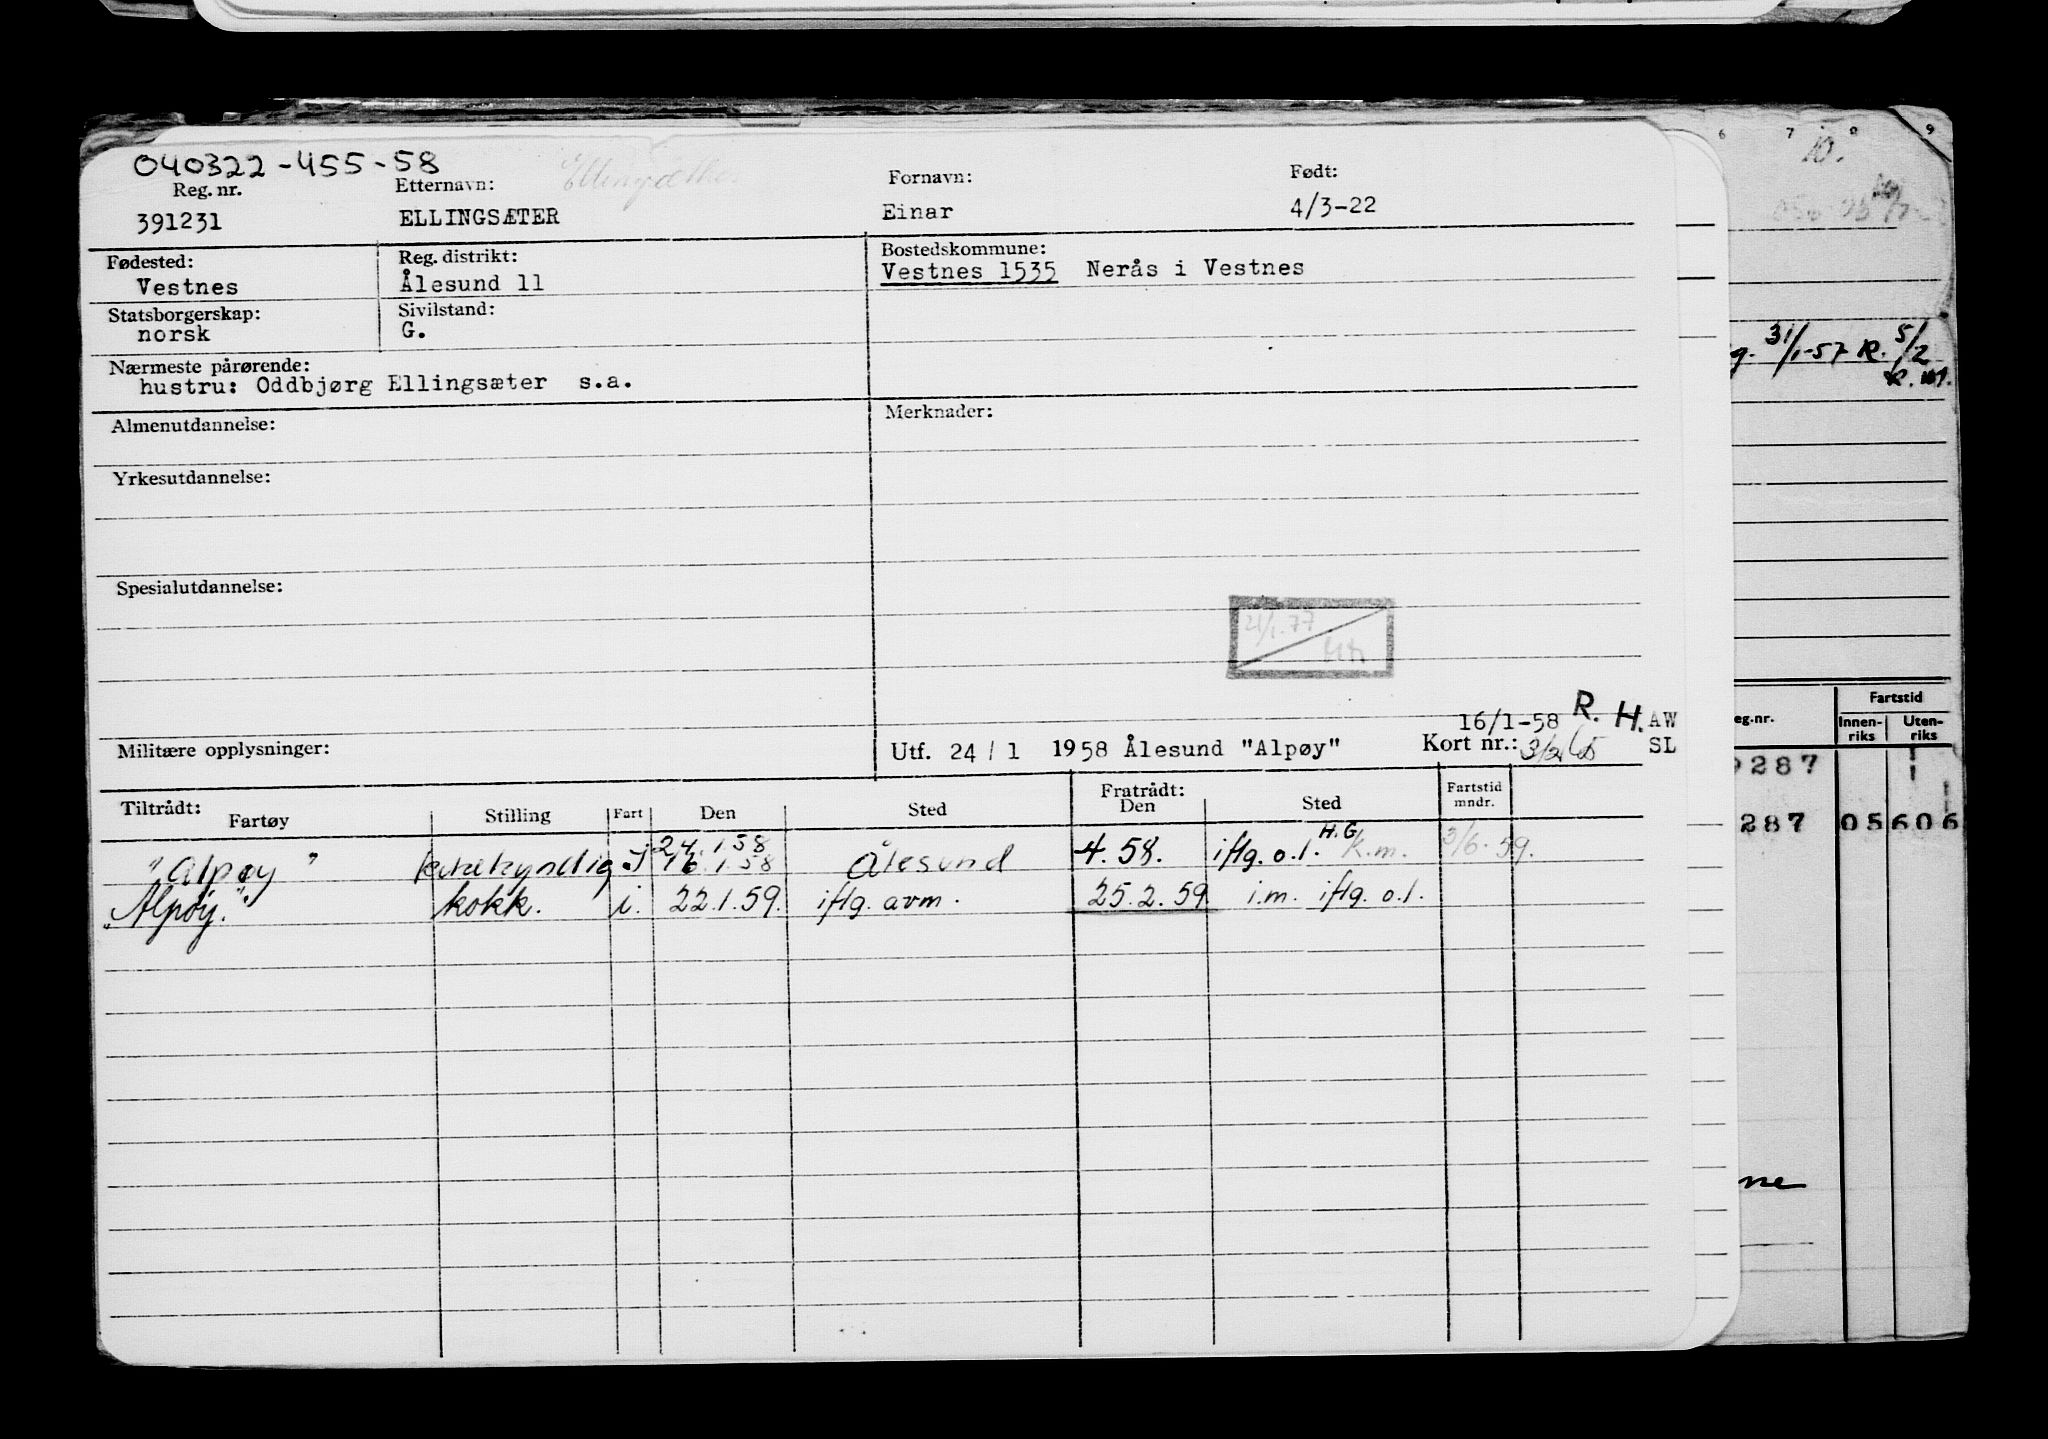 040322-455-58
Reg. nr. Etternavn: Fornavn: Født:
391231 ELLINGSÆTER Einar 4/3-22
Fødested: Reg. distrikt: Bostedskommune:
Vestnes Ålesund 11 Vestnes 1535 Nerås i Vestnes
Statsborgerskap: Sivilstand:
norsk G.
Nærmeste pårørende:
hustru: Oddbjørg Ellingsæter s.a.
Almenutdannelse: Merknader:
Yrkesutdannelse:
Spesialutdannelse:
21/1.77
16/1-58 R. H. AW
Militære opplysninger: Utf. 24/1 1958 Ålesund "Alpøy" Kort nr.: SL
Tiltrådt: Fratrådt:
Fartøy Stilling Fart Den Sted Den Sted Fartstid mndr.
24.1.58 H.G.
"Alpøy" 16.1.58 Ålesund 4.58. iflg. o.l. k.m. 3/6.59.
"Alpøy". kokk. i. 22.1.59. iflg. avm. 25.2.59 i.m. iflg. o.l.
6 7 8 9
10.
g. 31/1-57 R. 5/2
eg.nr. Fartstid
Innen-riks Uten-riks
287
287 05 606
ne